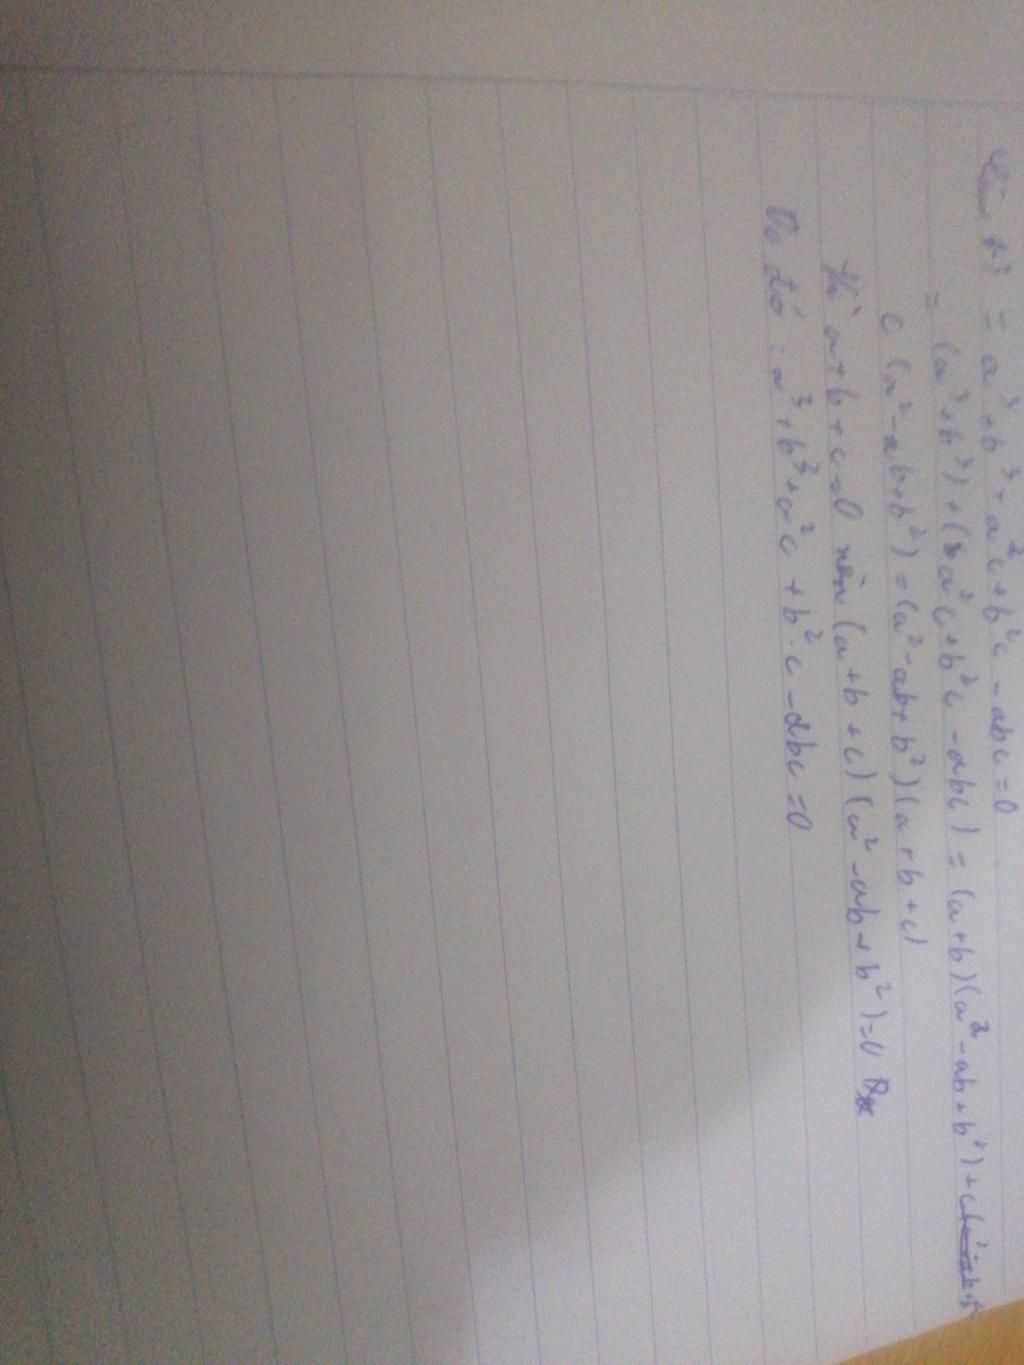 = a³ + b³ + a²c + b²c - abc = 0
= (a³ + b³) + (a²c + b²c - abc) = (a+b)(a² - ab + b²) +
c (a² - ab + b²) = (a² - ab + b²)(a + b + c)
Vì a + b + c = 0 nên (a + b + c)(a² - ab + b²) = 0
Do đó : a³ + b³ + a²c + b².c - abc = 0